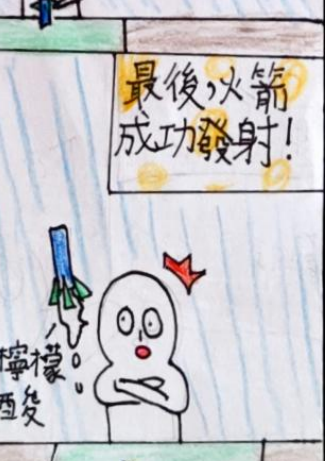 最後,火箭
成功發射!
檸檬
酸